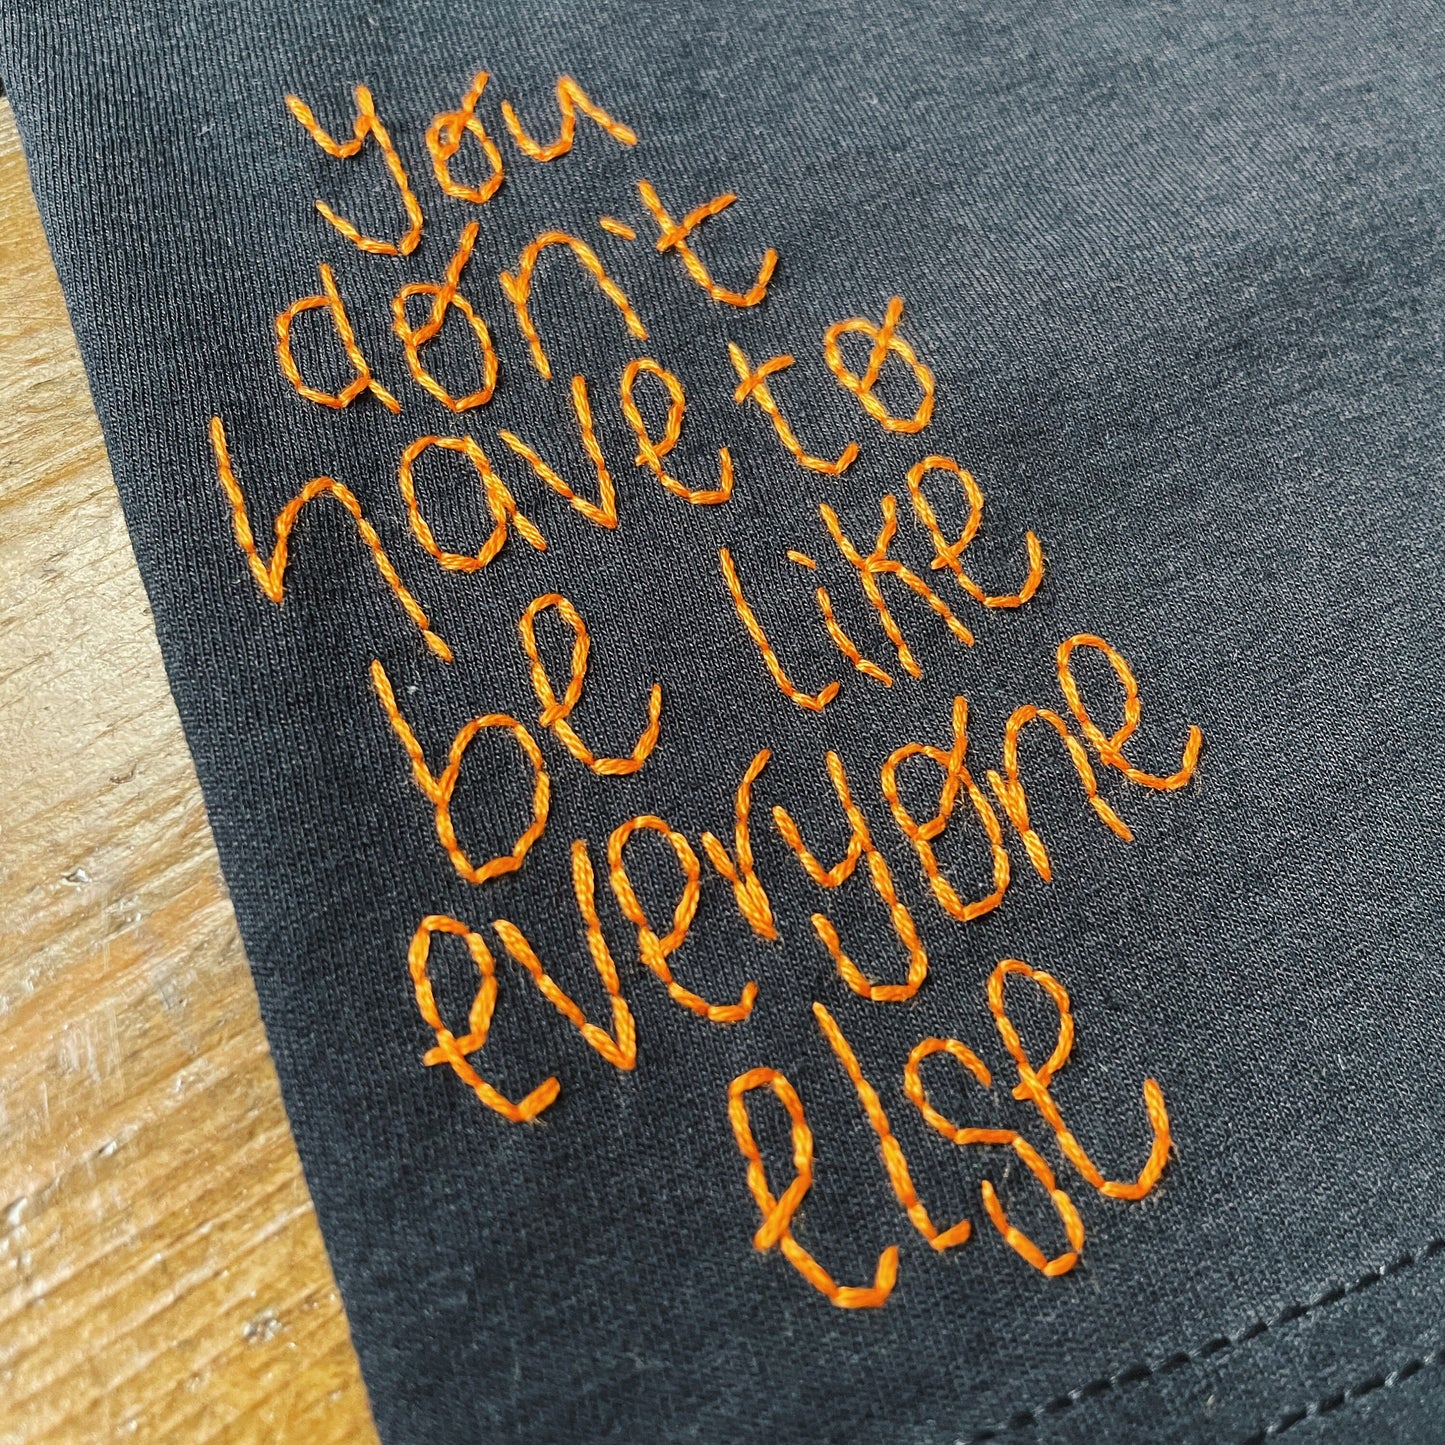 you
don't
have to
be like
everyone
else